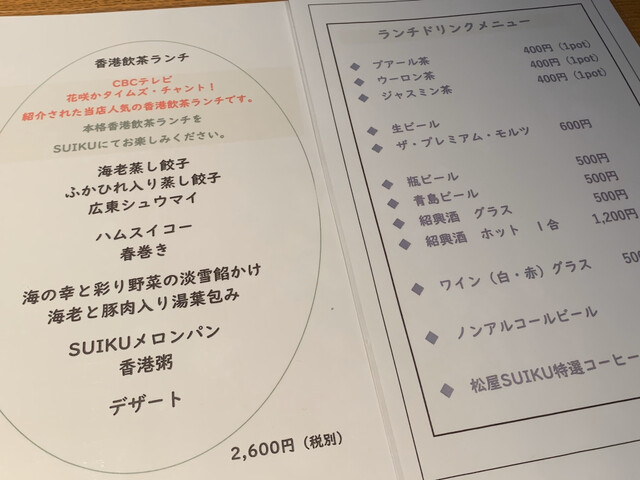 香港飲茶ランチ
CBCテレビ
花咲かタイムズ・チャント！
紹介された当店人気の香港飲茶ランチです。
本格香港飲茶ランチを
SUIKUにてお楽しみください。
海老蒸し餃子
ふかひれ入り蒸し餃子
広東シュウマイ
ハムスイコー
春巻き
海の幸と彩り野菜の淡雪餡かけ
海老と豚肉入り湯葉包み
SUIKUメロンパン
香港粥
デザート
2,600円（税別）
ランチドリンクメニュー
◆ プアール茶 400円（1pot）
◆ ウーロン茶 400円（1pot）
◆ ジャスミン茶 400円（1pot）
◆ 生ビール
◆ ザ・プレミアム・モルツ 600円
◆ 瓶ビール 500円
◆ 青島ビール 500円
◆ 紹興酒 グラス 500円
◆ 紹興酒 ホット 1合 1,200円
◆ ワイン（白・赤）グラス 500
◆ ノンアルコールビール
◆ 松屋SUIKU特選コーヒー